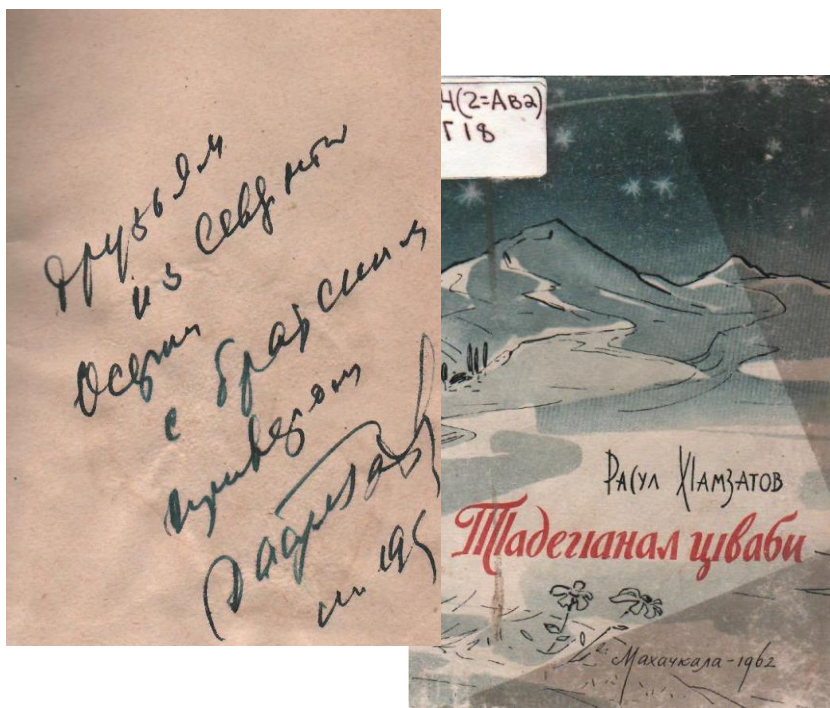 Друзьям
из
Осетии
с братским
приветом
4(2=Ава)
Г18
Расул ХӀамзатов
ТӀадегӀанал цӀваби
Махачкала-1962